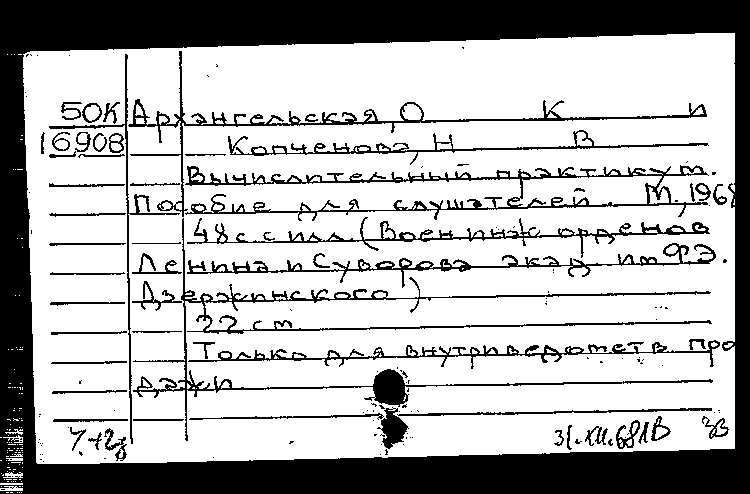 50К Архангельская, О К и
16908 Копченова, Н В
Вычислительный практикум.
Пособие для слушателей. М., 1968
48 с с илл. (Воен инж орденов
Ленина и Суворова акад им Ф.Э.
Дзержинского).
22 см
Только для внутриведомств про
дажи
31.XII.68